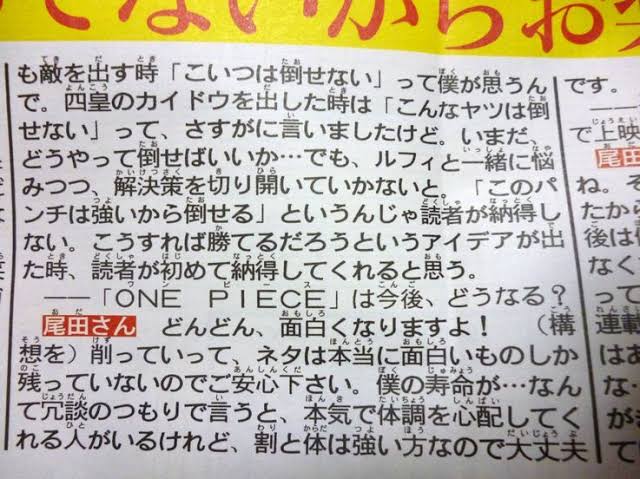 でないからお
も敵を出す時「こいつは倒せない」って僕が思うん
で。四皇のカイドウを出した時は「こんなヤツは倒
せない」って、さすがに言いましたけど。いまだ、
どうやって倒せばいいか…でも、ルフィと一緒に悩
みつつ、解決策を切り開いていかないと。「このパ
ンチは強いから倒せる」というんじゃ読者が納得し
ない。こうすれば勝てるだろうというアイデアが出
た時、読者が初めて納得してくれると思う。
――「ONE PIECE」は今後、どうなる?
尾田さん どんどん、面白くなりますよ! (構
想を)削っていって、ネタは本当に面白いものしか
残っていないのでご安心下さい。僕の寿命が…なん
て冗談のつもりで言うと、本気で体調を心配してく
れる人がいるけれど、割と体は強い方なので大丈夫
です。
で上映
尾田
ね。そ
たから
後は信
なくて
って
連載
はお